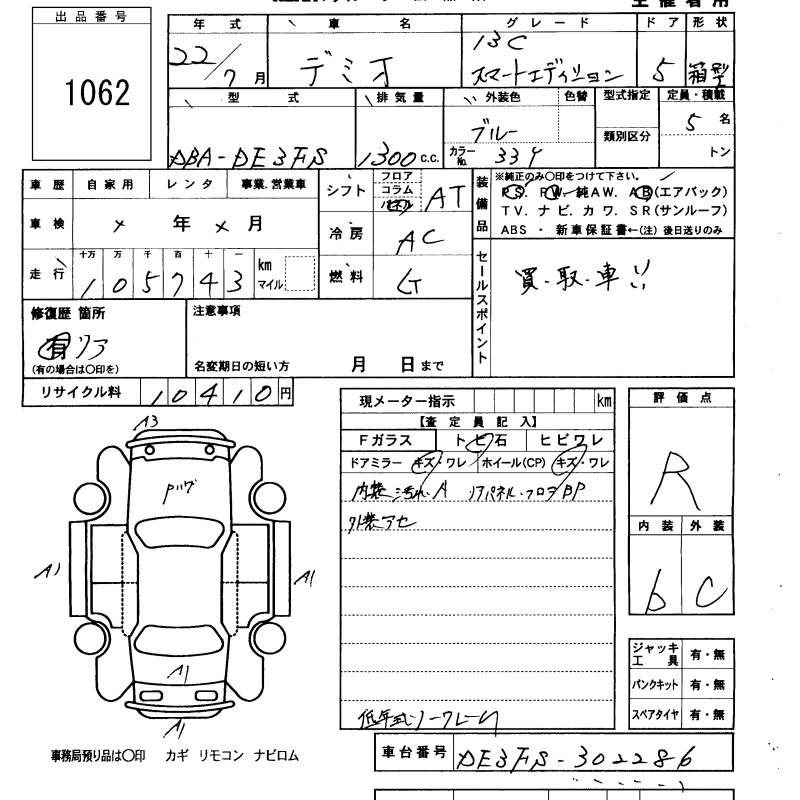 出品番号
1062
年式 車名 グレード ドア 形状
22/7月 デミオ 13C スマートエディション 5 箱型
型式 排気量 外装色 色替 型式指定 定員・積載
類別区分
DBA-DE3FS 1300c.c. ブルー カラーNo. 33Y 5名
トン
車歴 自家用 レンタ 事業.営業車
車検 × 年 × 月
走行 十万 万 千 百 十 一
105743 km マイル
シフト フロア コラム パネル AT
冷房 AC
燃料 G
装備品
※純正のみ○印をつけて下さい。
PS. PW. 純AW. AB(エアバック)
TV. ナビ. カワ. SR(サンルーフ)
ABS ・ 新車保証書←(注) 後日送りのみ
セールスポイント
買・取・車!!
修復歴 箇所
有 リア
(有の場合は○印を)
注意事項
名変期日の短い方 月 日まで
リサイクル料 10410円
現メーター指示 km
【査定員記入】
Fガラス トビ石 ヒビワレ
ドアミラー キズ・ワレ ホイール(CP) キズ・ワレ
内装汚れ.A リアパネル・フロアBP
外装アセ
低年式ノークレーム
評価点
R
内装 外装
b C
ジャッキ工具 有・無
パンクキット 有・無
スペアタイヤ 有・無
A3
A1
A1
A1
A1
事務局預り品は○印 カギ リモコン ナビロム
車台番号 DE3FS-302286